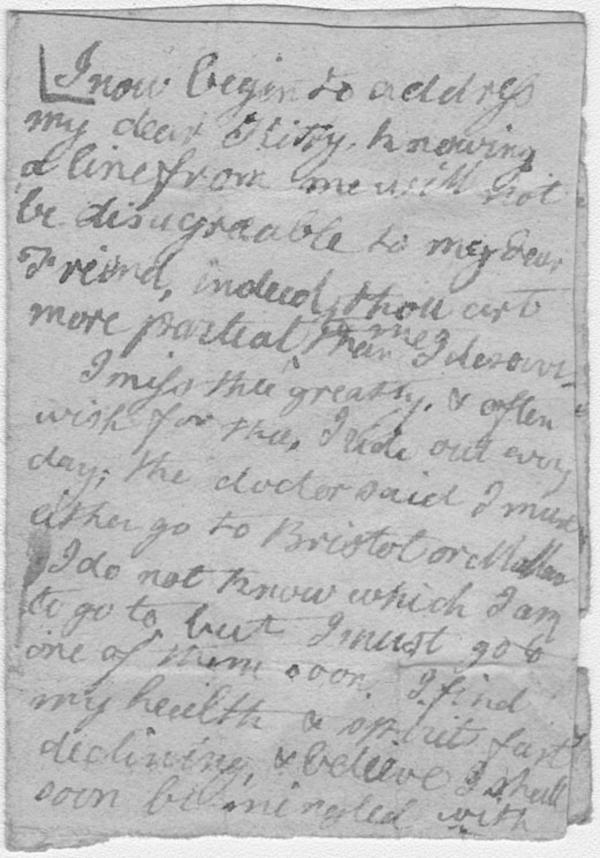 I now begin to address
my dear Kitty, knowing
a line from me will not
be disagreable to my Dear
Freind, indeed, thou art
more partial to me than I desarve
I miss thee greatly, & often
wish for thee, I ride out every
day; the doctor said I must
either go to Bristol or Mallow
I do not know which I am
to go to but I must go to
one of them soon, I find
my health & spirits fast
declining, & beleive I shall
soon be mingled with